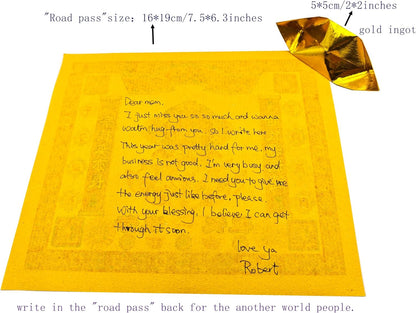 "Road pass"size: 16*19cm/7.5*6.3inches
5*5cm/2*2inches
gold ingot
Dear mom,
I just miss you so so much and wanna
warm hug from you. So I write here
This year was pretty hard for me, my
business is not good. I'm very busy and
also feel anxious. I need you to give me
the energy just like before, please.
With your blessing, I believe I can get
through it soon.
love ya
Robert
write in the "road pass" back for the another world people.